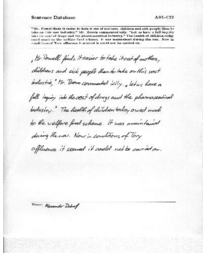 Sentence Database A01-C22
"Mr. Powell finds it easier to take it out of mothers, children and sick people than to
take on this vast industry," Mr. Brown commented icily. "Let us have a full inquiry
into the cost of drugs and the pharmaceutical industry." The health of children today
owed much to the welfare food scheme. It was maintained during the war. Now in
conditions of Tory affluence it seemed it could not be carried on.
„Mr. Powell finds it easier to take it out of mothers,
children and sick people than to take on this vast
industry,” Mr. Brown commented icily. „Let us have a
full inquiry into the cost of drugs and the pharmaceutical
industry.” The health of children today owed much
to the welfare food scheme. It was maintained
during the war. Now in conditions of Tory
affluence it seemed it could not be carried on.
Name: Alexander